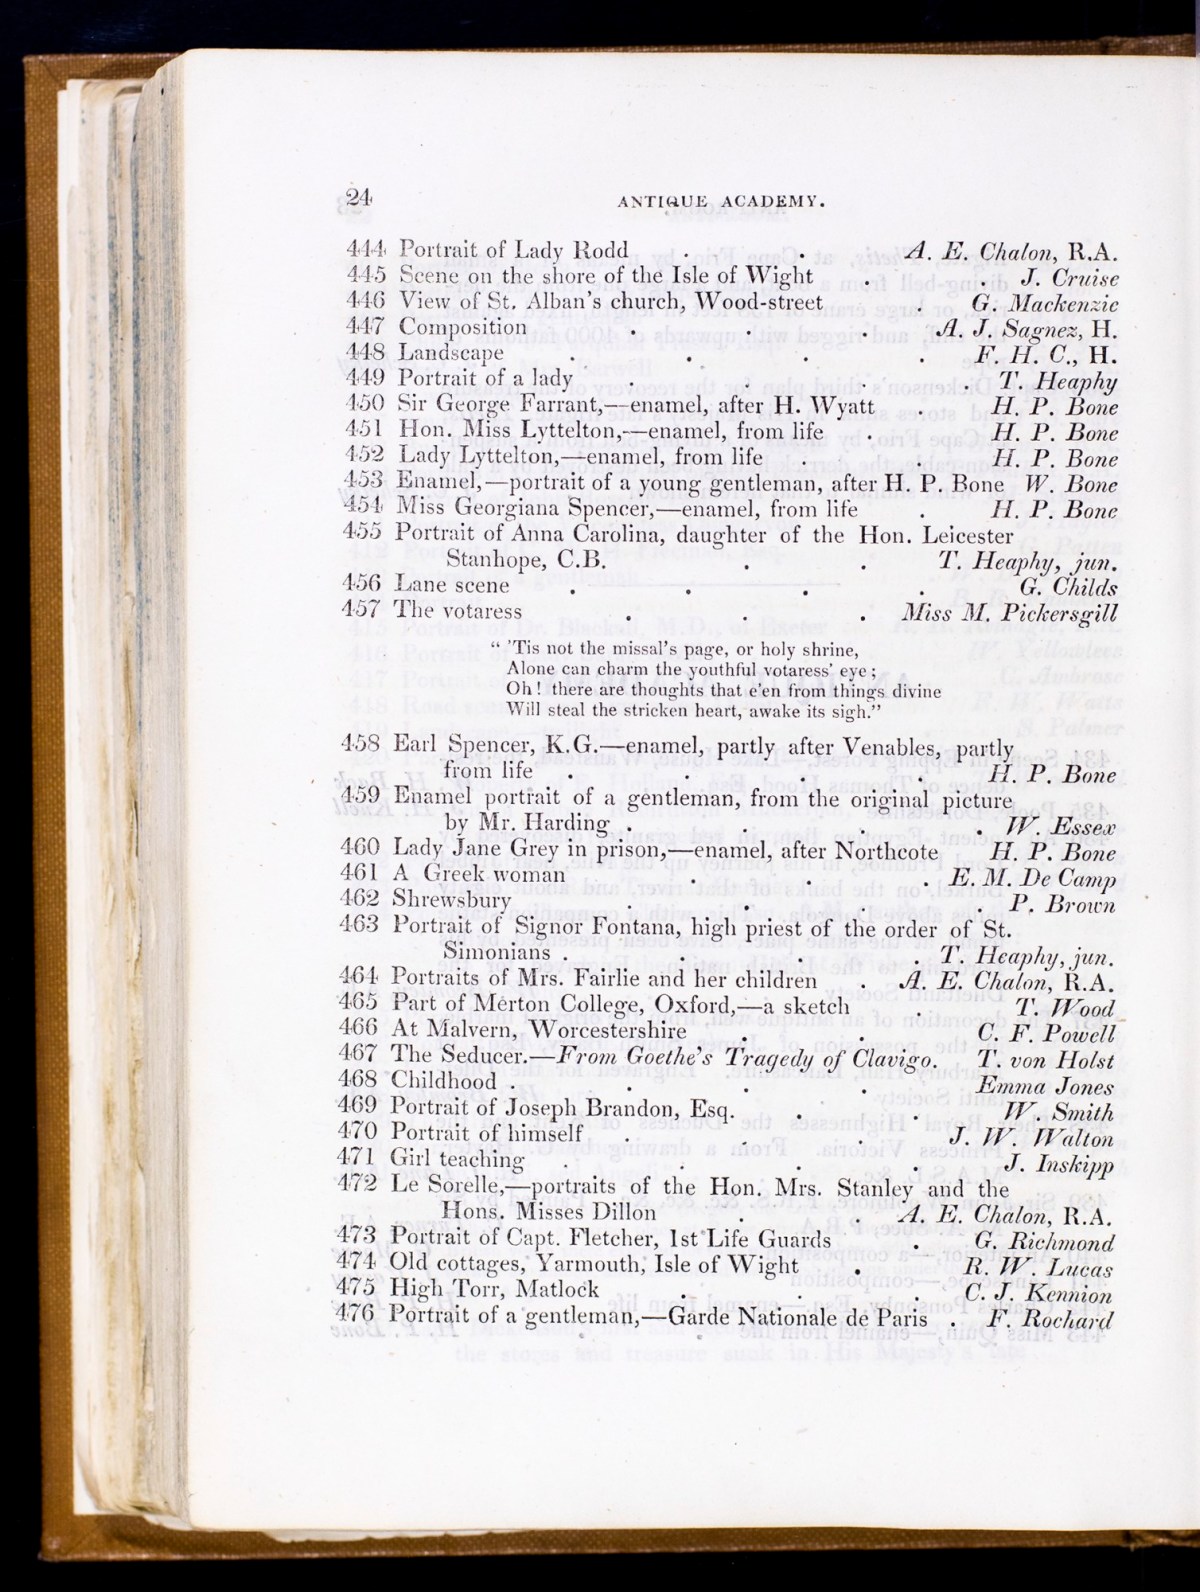 24 ANTIQUE ACADEMY.
444 Portrait of Lady Rodd . . A. E. Chalon, R.A.
445 Scene on the shore of the Isle of Wight . . J. Cruise
446 View of St. Alban's church, Wood-street . G. Mackenzie
447 Composition . . . A. J. Sagnez, H.
448 Landscape . . . . F. H. C., H.
449 Portrait of a lady . . . . T. Heaphy
450 Sir George Farrant,—enamel, after H. Wyatt . H. P. Bone
451 Hon. Miss Lyttelton,—enamel, from life . . H. P. Bone
452 Lady Lyttelton,—enamel, from life . . H. P. Bone
453 Enamel,—portrait of a young gentleman, after H. P. Bone W. Bone
454 Miss Georgiana Spencer,—enamel, from life . H. P. Bone
455 Portrait of Anna Carolina, daughter of the Hon. Leicester
Stanhope, C.B. . . T. Heaphy, jun.
456 Lane scene . . . . G. Childs
457 The votaress . . . Miss M. Pickersgill
" 'Tis not the missal's page, or holy shrine,
Alone can charm the youthful votaress' eye ;
Oh ! there are thoughts that e'en from things divine
Will steal the stricken heart, awake its sigh."
458 Earl Spencer, K.G.—enamel, partly after Venables, partly
from life . . . . H. P. Bone
459 Enamel portrait of a gentleman, from the original picture
by Mr. Harding . . . . W. Essex
460 Lady Jane Grey in prison,—enamel, after Northcote H. P. Bone
461 A Greek woman . . . E. M. De Camp
462 Shrewsbury . . . . P. Brown
463 Portrait of Signor Fontana, high priest of the order of St.
Simonians . . . . T. Heaphy, jun.
464 Portraits of Mrs. Fairlie and her children . A. E. Chalon, R.A.
465 Part of Merton College, Oxford,—a sketch . T. Wood
466 At Malvern, Worcestershire . . C. F. Powell
467 The Seducer.—From Goethe's Tragedy of Clavigo. T. von Holst
468 Childhood . . . . Emma Jones
469 Portrait of Joseph Brandon, Esq. . . W. Smith
470 Portrait of himself . . . J. W. Walton
471 Girl teaching . . . . J. Inskipp
472 Le Sorelle,—portraits of the Hon. Mrs. Stanley and the
Hons. Misses Dillon . . A. E. Chalon, R.A.
473 Portrait of Capt. Fletcher, 1st Life Guards . G. Richmond
474 Old cottages, Yarmouth, Isle of Wight . R. W. Lucas
475 High Torr, Matlock . . . C. J. Kennion
476 Portrait of a gentleman,—Garde Nationale de Paris . F. Rochard